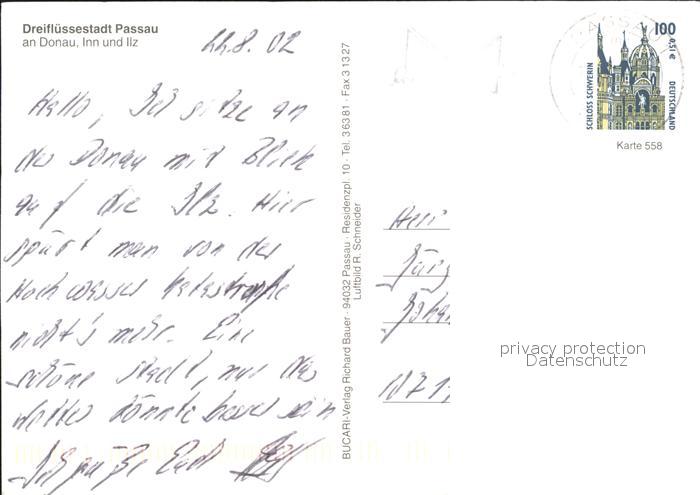 Dreiflüssestadt Passau
an Donau, Inn und Ilz
22.8.02
Hallo, Ich sitze an
der Donau mit Blick
auf die Ilz. Hier
spürt man von der
Hochwasser Katastrophe
nicht's mehr. Eine
schöne Stadt, nur das
Wetter könnte besser sein
Ich grüße Euch
BUCARI-Verlag Richard Bauer · 94032 Passau · Residenzpl. 10 · Tel. 3 63 81 · Fax 3 13 27
Luftbild R. Schneider
PASSAU
100
0,51 €
SCHLOSS SCHWERIN
DEUTSCHLAND
Karte 558
Herr
Jürg
privacy protection
Datenschutz